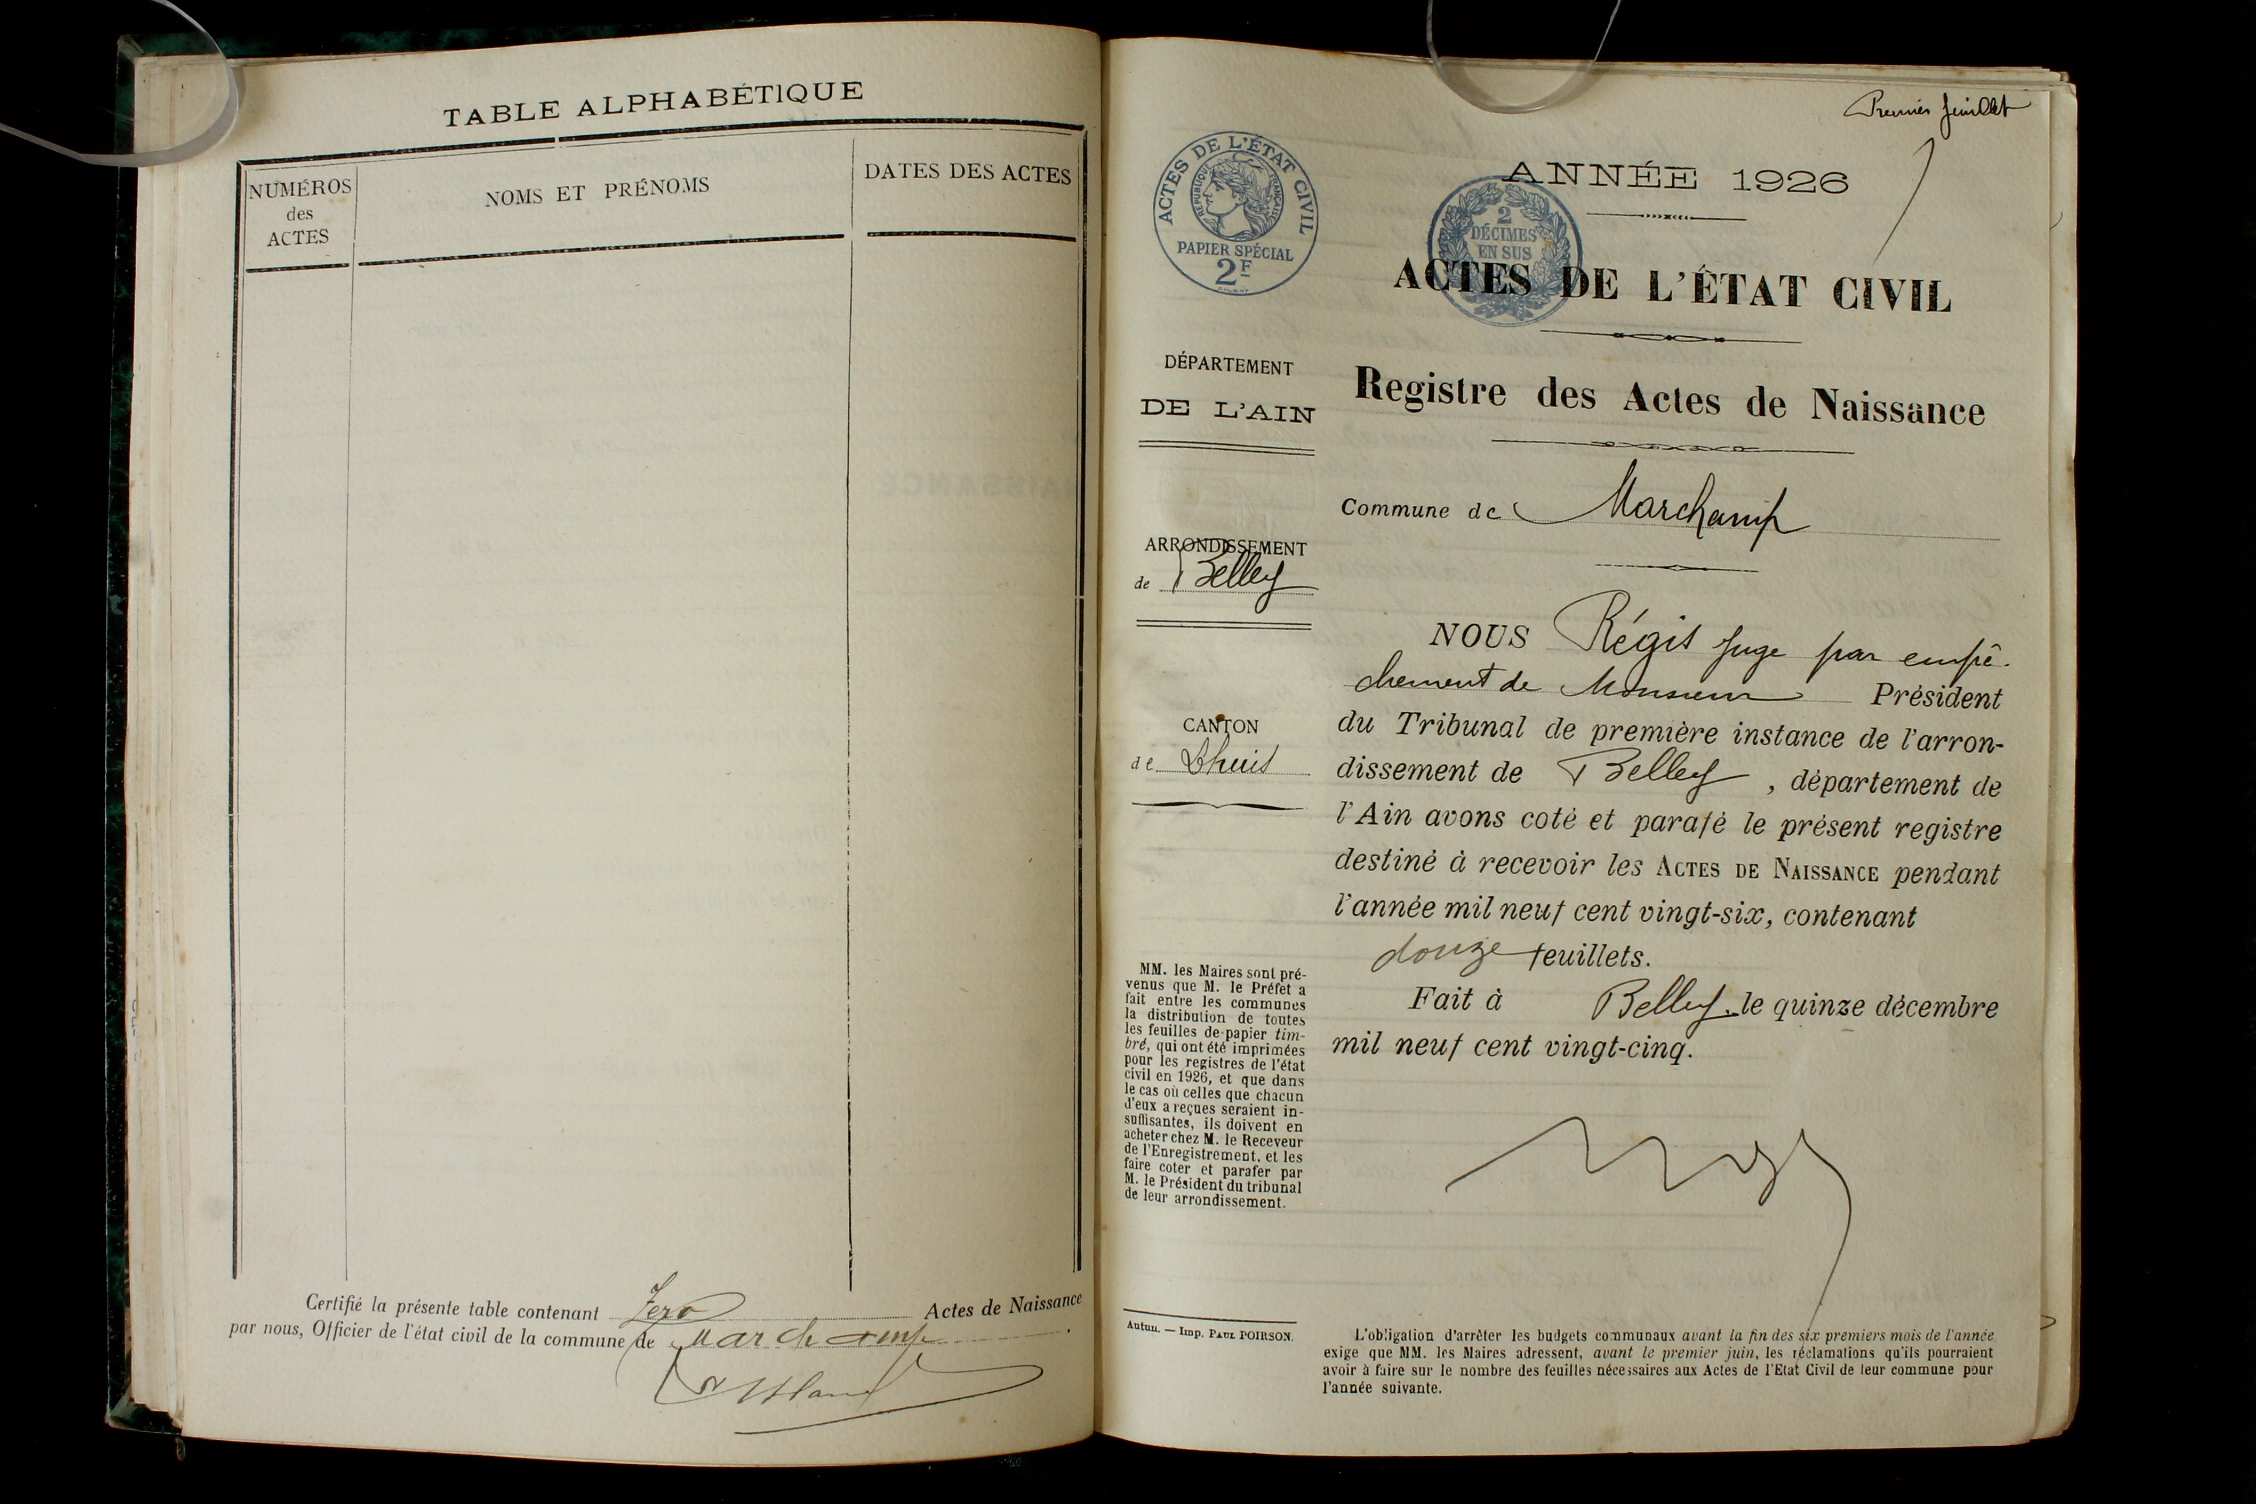 TABLE ALPHABÉTIQUE
NUMÉROS
des
ACTES
NOMS ET PRÉNOMS
DATES DES ACTES
Certifié la présente table contenant Zero Actes de Naissance
par nous, Officier de l'état civil de la commune de Marchamp.
Premier feuillet
ACTES DE L'ÉTAT CIVIL
RÉPUBLIQUE FRANÇAISE
PAPIER SPÉCIAL
2F
ANNÉE 1926
2
DÉCIMES
EN SUS
ACTES DE L'ÉTAT CIVIL
DÉPARTEMENT
DE L'AIN
Registre des Actes de Naissance
Commune de Marchamp
ARRONDISSEMENT
de Belley
CANTON
de Lhuis
NOUS Régis Juge par empê-
chement de Monsieur Président
du Tribunal de première instance de l'arron-
dissement de Belley, département de
l'Ain avons coté et parafé le présent registre
destiné à recevoir les ACTES DE NAISSANCE pendant
l'année mil neuf cent vingt-six, contenant
douze feuillets.
Fait à Belley, le quinze décembre
mil neuf cent vingt-cinq.
MM. les Maires sont pré-
venus que M. le Préfet a
fait entre les communes
la distribution de toutes
les feuilles de papier tim-
bré, qui ont été imprimées
pour les registres de l'état
civil en 1926, et que dans
le cas où celles que chacun
d'eux a reçues seraient in-
suffisantes, ils doivent en
acheter chez M. le Receveur
de l'Enregistrement, et les
faire coter et parafer par
M. le Président du tribunal
de leur arrondissement.
Autun. — Imp. PAUL POIRSON.
L'obligation d'arrêter les budgets communaux avant la fin des six premiers mois de l'année
exige que MM. les Maires adressent, avant le premier juin, les réclamations qu'ils pourraient
avoir à faire sur le nombre des feuilles nécessaires aux Actes de l'Etat Civil de leur commune pour
l'année suivante.